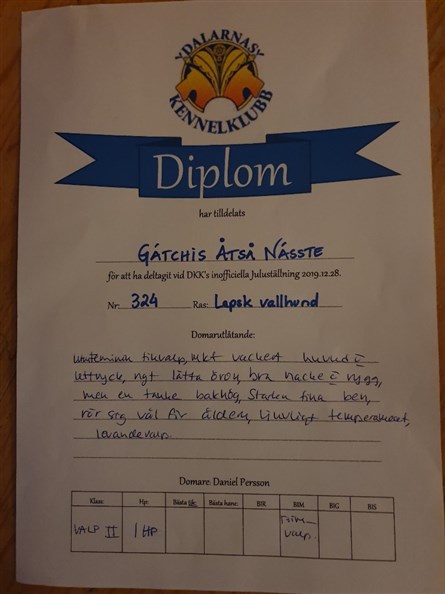 YDALARNASY
KENNELKLUBB
Diplom
har tilldelats
GÁTCHIS ÅTSÅ NÁSSTE
för att ha deltagit vid DKK's inofficiella Juluställning 2019.12.28.
Nr: 324 Ras: Lapsk vallhund
Domarutlåtande:
tikvalp, mkt vackert huvud
uttryck, ngt lätta öron, bra nacke rygg,
men en tanke bakhög, Starka fina ben,
rör sig väl för åldern, ljuvligt temperament,
lovande valp.
Domare: Daniel Persson
Klass: Hp: Bästa tik: Bästa hane: BIR BIM BIG BIS
VALP II 1 HP BIM valp.